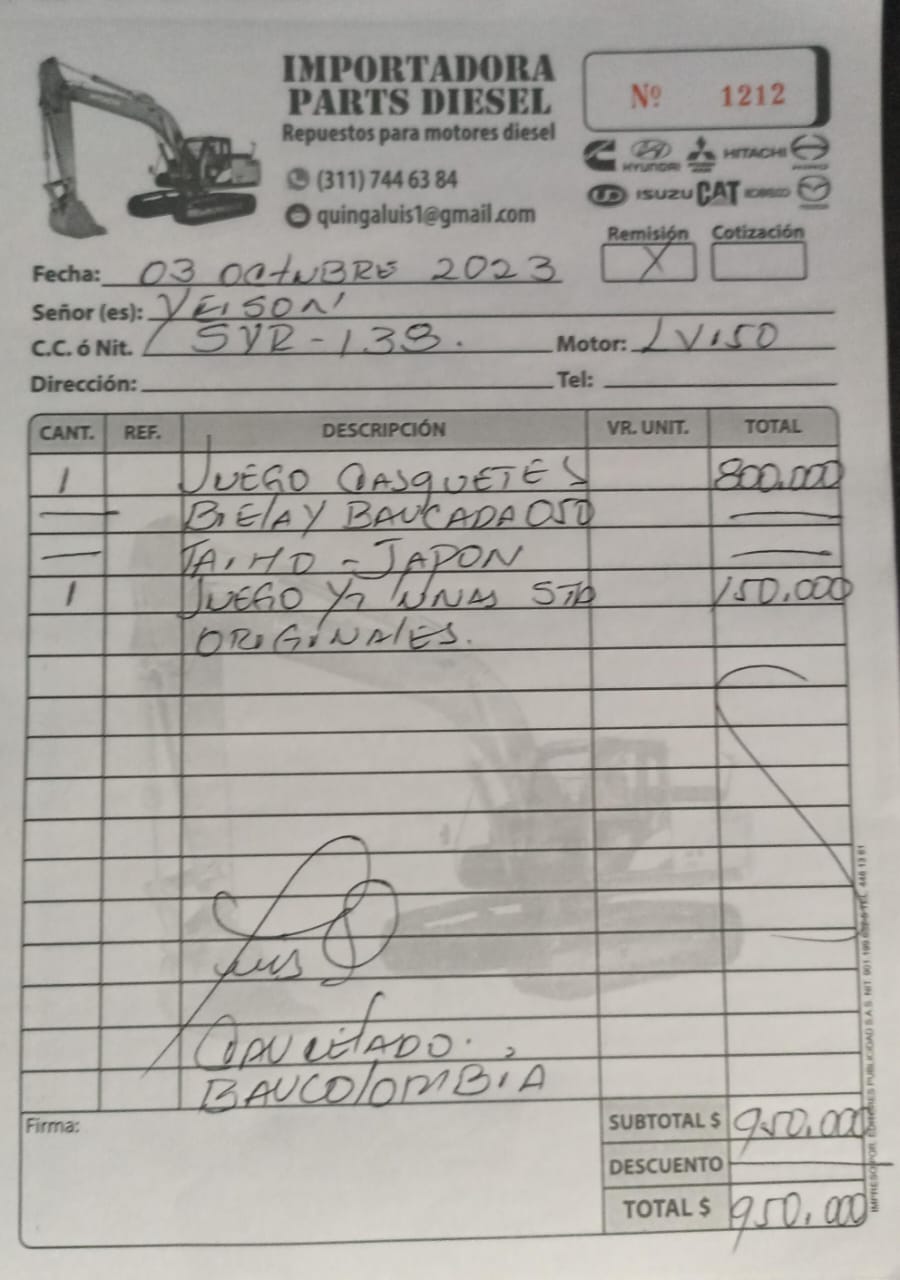 IMPORTADORA
PARTS DIESEL
Repuestos para motores diesel
(311) 744 63 84
quingaluis1@gmail.com
Nº 1212
HYUNDAI HITACHI
ISUZU CAT KOBELCO
Remisión Cotización
X
Fecha: 03 OCTUBRE 2023
Señor (es): YEISON
C.C. ó Nit. SVR-138. Motor: LV150
Dirección: Tel:
CANT. REF. DESCRIPCIÓN VR. UNIT. TOTAL
1 JUEGO CASQUETES 800.000
— BIELA Y BANCADA 050 —
— TAIHO - JAPON —
1 JUEGO 1/2 LUNAS STD 150.000
ORIGINALES.
Luis
CANCELADO.
BANCOLOMBIA
Firma:
SUBTOTAL $ 950.000
DESCUENTO —
TOTAL $ 950.000